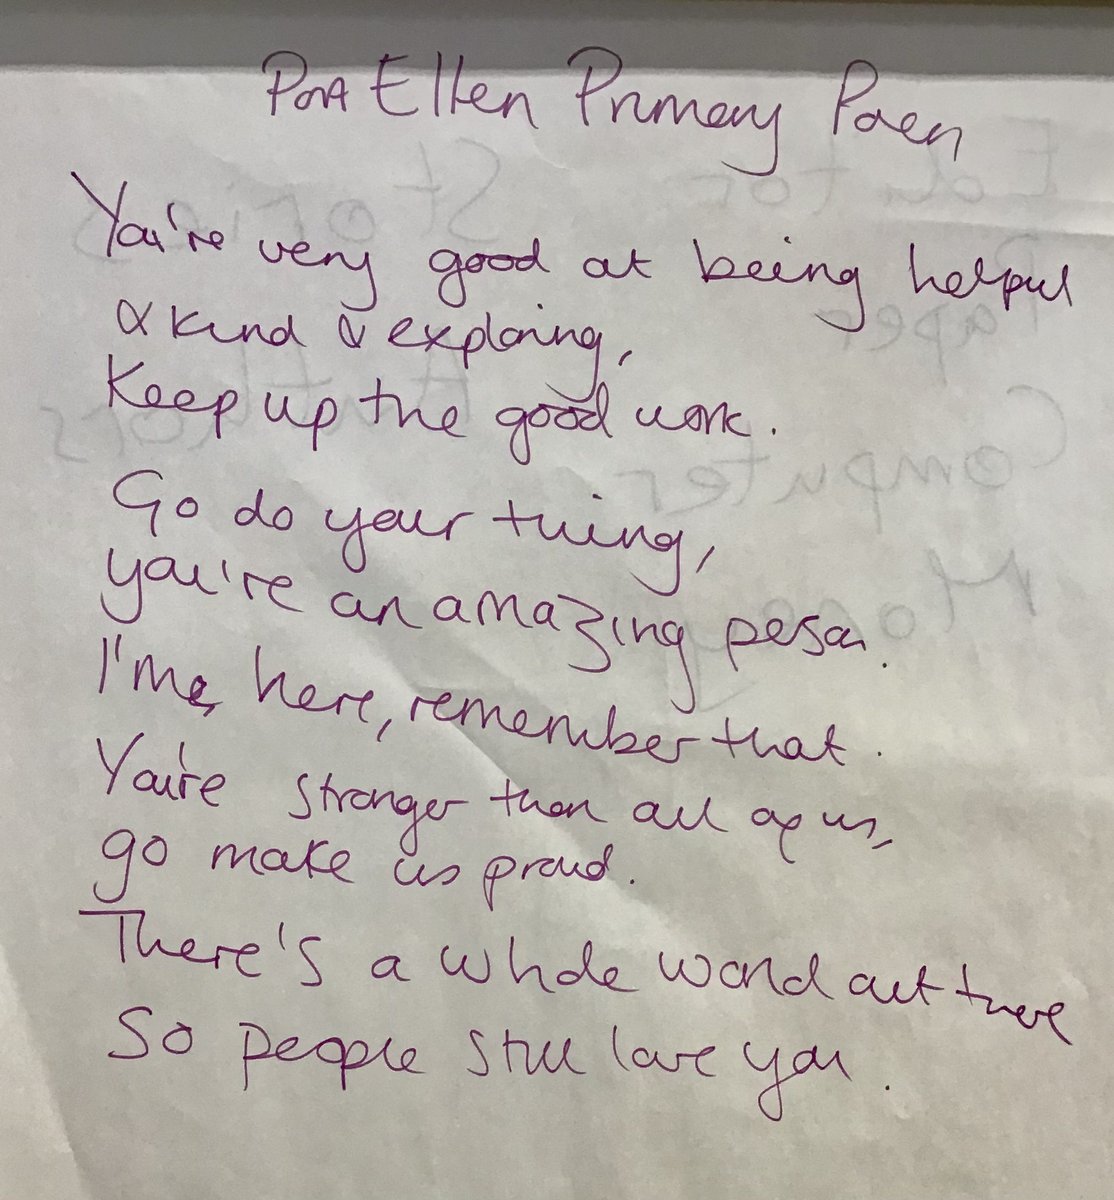 Port Ellen Primary Poem
You're very good at being helpful
& kind & exploring,
Keep up the good work.
Go do your thing,
you're an amazing person.
I'me, here, remember that.
You're stronger than all of us,
go make us proud.
There's a whole world out there
So people still love you.
Editor Stories
Paper
Authors
Computer
Money